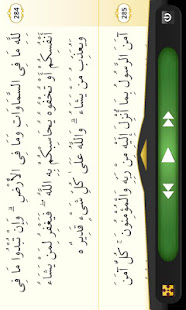 284
لِلَّهِ مَا فِي السَّمَاوَاتِ وَمَا فِي الْأَرْضِ ۗ وَإِنْ تُبْدُوا مَا فِي
أَنْفُسِكُمْ أَوْ تُخْفُوهُ يُحَاسِبْكُمْ بِهِ اللَّهُ ۖ فَيَغْفِرُ لِمَنْ يَشَاءُ
وَيُعَذِّبُ مَنْ يَشَاءُ ۗ وَاللَّهُ عَلَىٰ كُلِّ شَيْءٍ قَدِيرٌ
285
آمَنَ الرَّسُولُ بِمَا أُنْزِلَ إِلَيْهِ مِنْ رَبِّهِ وَالْمُؤْمِنُونَ ۚ كُلٌّ آمَنَ